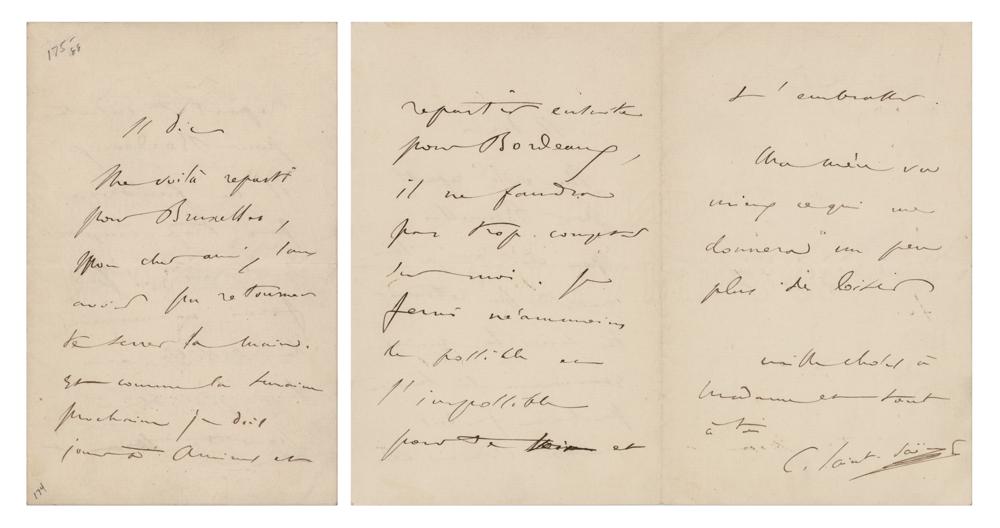 175
88
11 Dec
Me voilà reparti
pour Bruxelles,
mon cher ami, sans
avoir pu retourner
te serrer la main.
Et comme la semaine
prochaine je dois
jouer à Amiens et
174
repartir ensuite
pour Bordeaux,
il ne faudra
pas trop compter
sur moi. Je
ferai néanmoins
le possible et
l'impossible
pour te voir et
t'embrasser.
Ma mère va
mieux ce qui me
donnera un peu
plus de loisir
mille choses à
Madame et tout
à toi
C. Saint-Saëns